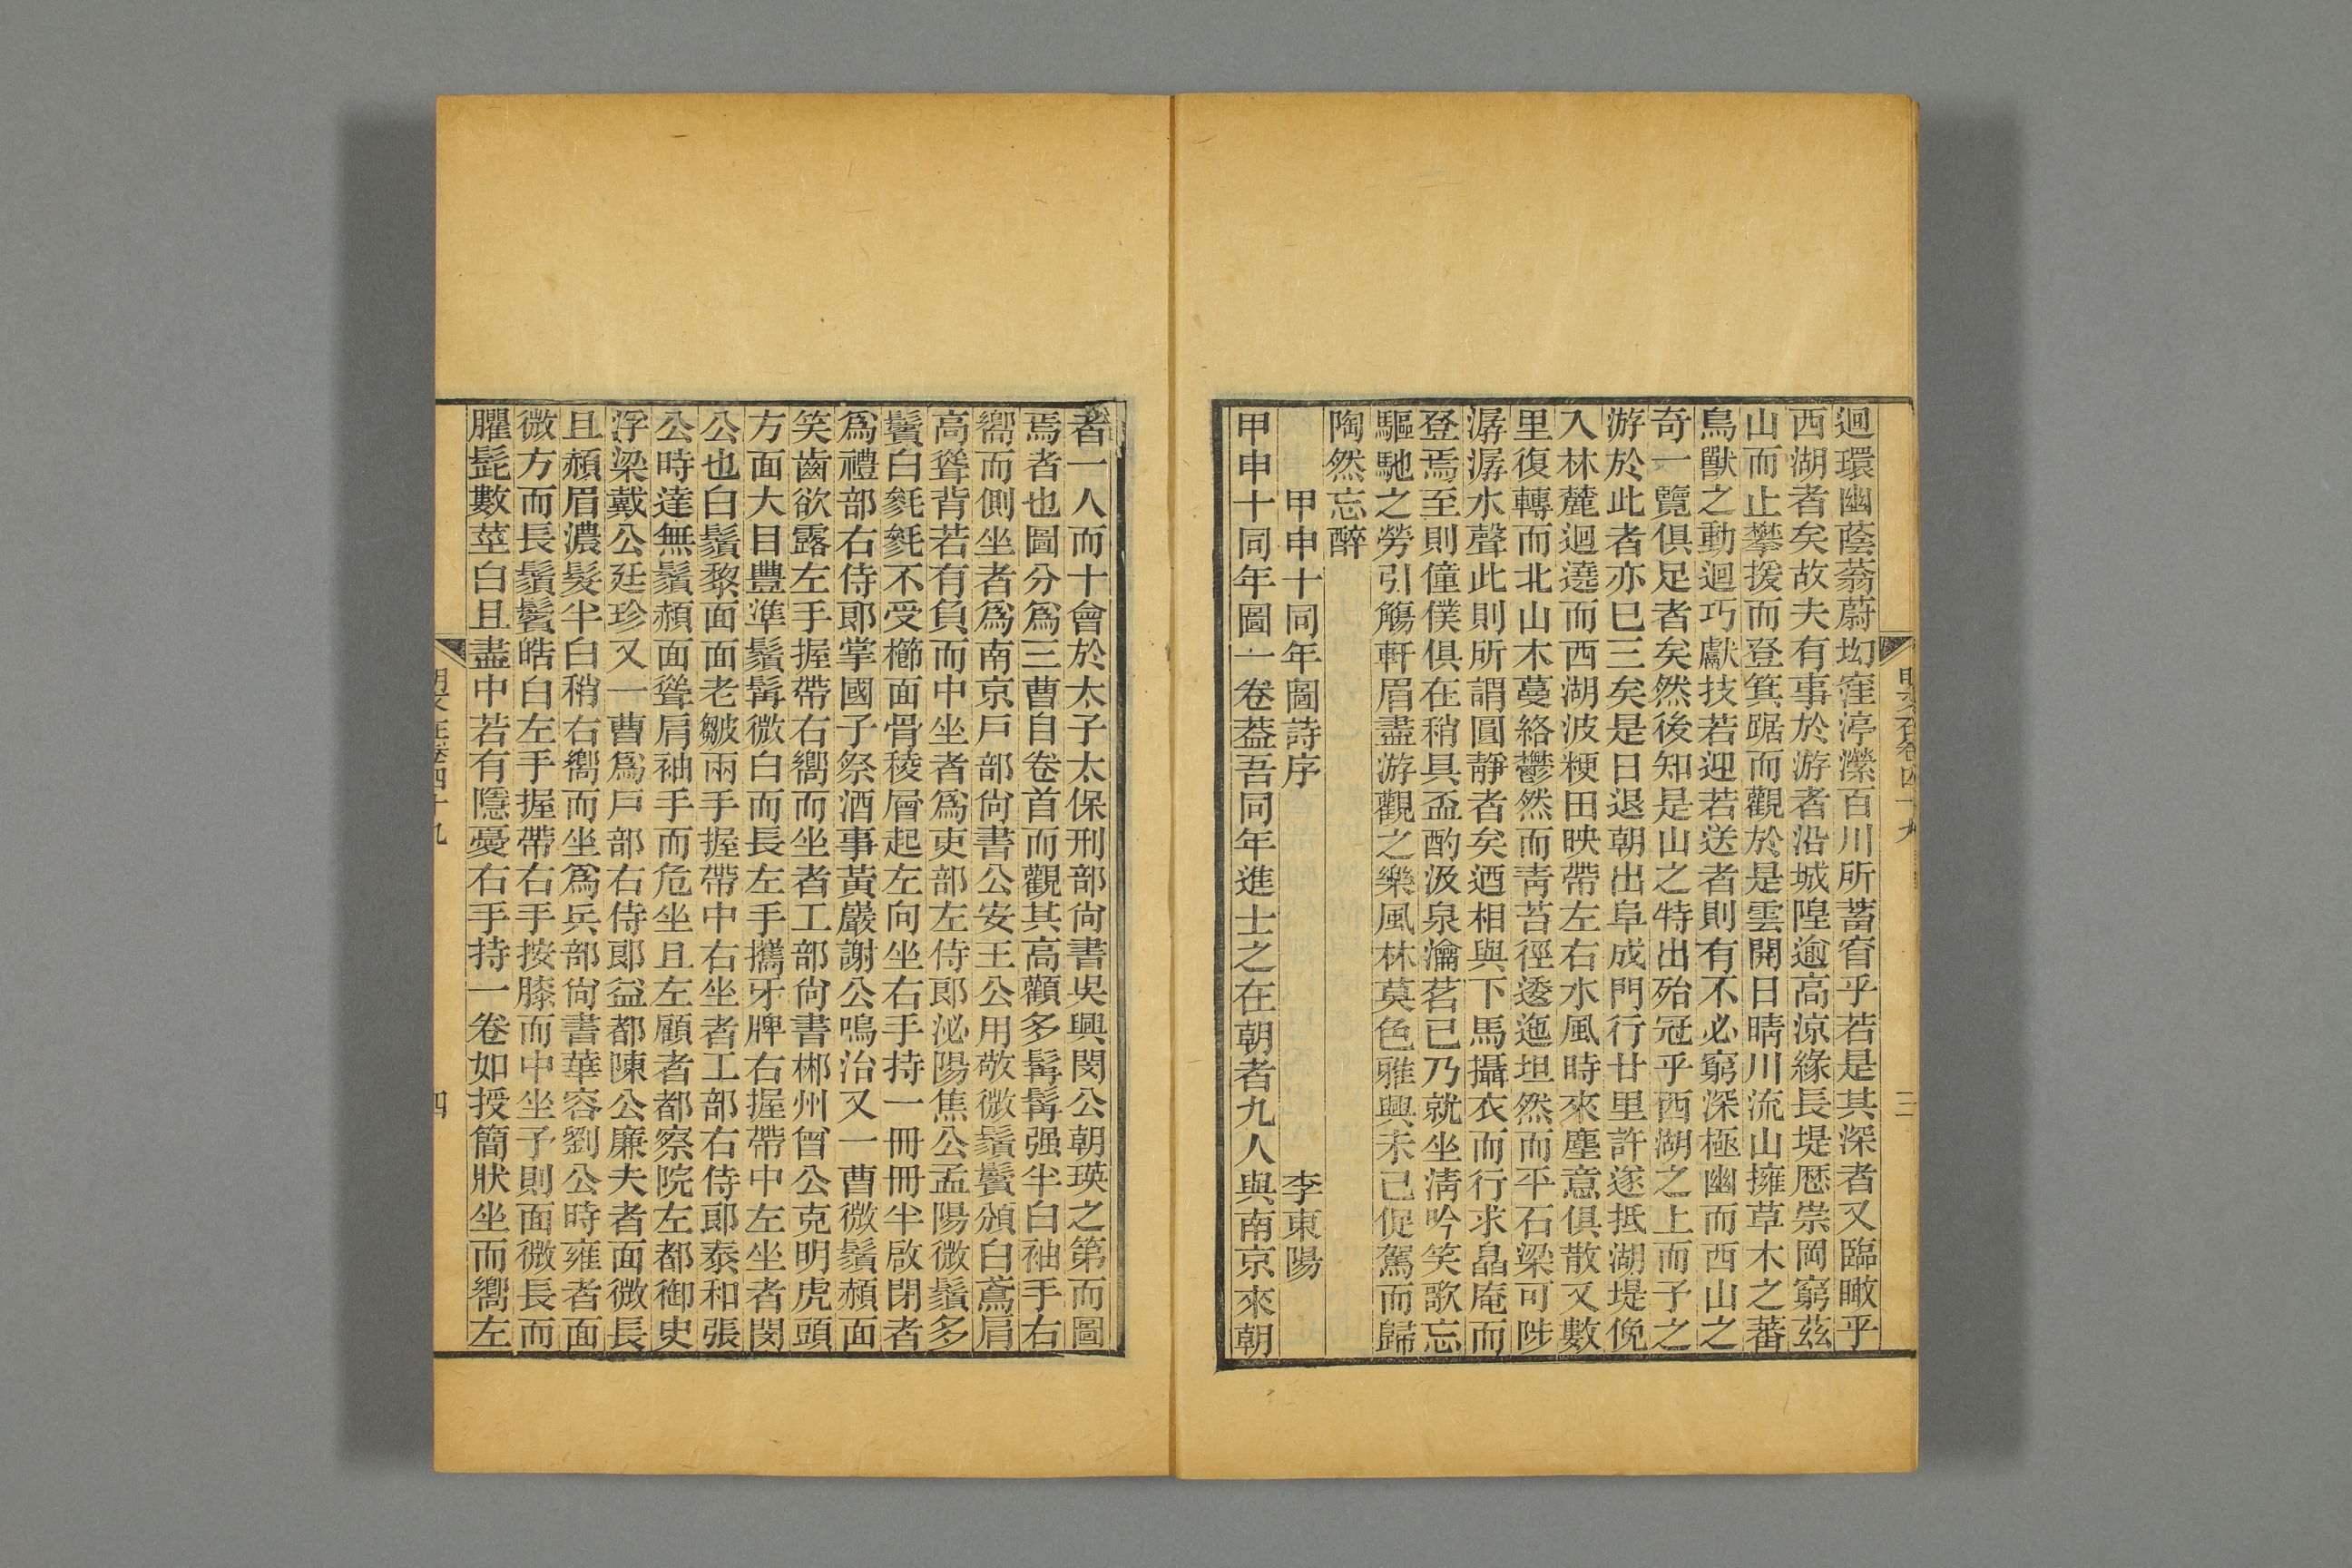 迴環幽蔭蓊蔚坳窪渟瀠百川所蓄窅乎若是其深者又臨瞰乎
西湖者矣故夫有事於游者沿城隍逾高涼緣長堤歷崇岡窮茲
山而止攀援而登箕踞而觀於是雲開日晴川流山擁草木之蕃
鳥獸之動迴巧獻技若迎若送者則有不必窮深極幽而西山之
奇一覽俱足者矣然後知是山之特出殆冠乎西湖之上而予之
游於此者亦已三矣是日退朝出阜成門行廿里許遂抵湖堤俛
入林麓迴遶而西湖波粳田映帶左右水風時來塵意俱散又數
里復轉而北山木蔓絡鬱然而靑苔徑逶迤坦然而平石梁可陟
潺潺水聲此則所謂圓靜者矣迺相與下馬攝衣而行求皛庵而
登焉至則僮僕俱在稍具盃酌汲泉瀹茗已乃就坐淸吟笑歌忘
驅馳之勞引觴軒眉盡游觀之樂風林莫色雅興未已促駕而歸
陶然忘醉
甲申十同年圖詩序 李東陽
甲申十同年圖一卷葢吾同年進士之在朝者九人與南京來朝
明文在卷四十九 三
者一人而十會於太子太保刑部尙書吳興閔公朝瑛之第而圖
焉者也圖分爲三曹自卷首而觀其高顴多髯髯强半白袖手右
嚮而側坐者爲南京戶部尙書公安王公用敬微鬚鬢頒白鳶肩
高聳背若有負而中坐者爲吏部左侍郎泌陽焦公孟陽微鬚多
鬢白毿毿不受櫛面骨稜層起左向坐右手持一冊冊半啟閉者
爲禮部右侍郎掌國子祭酒事黃巖謝公鳴治又一曹微鬚頳面
笑齒欲露左手握帶右嚮而坐者工部尙書郴州曾公克明虎頭
方面大目豐準鬚髯微白而長左手攜牙牌右握帶中左坐者閔
公也白鬚黎面面老皺兩手握帶中右坐者工部右侍郎泰和張
公時達無鬚頳面聳肩袖手而危坐且左顧者都察院左都御史
浮梁戴公廷珍又一曹爲戶部右侍郎益都陳公廉夫者面微長
且頳眉濃髮半白稍右嚮而坐爲兵部尙書華容劉公時雍者面
微方而長鬚鬢皓白左手握帶右手按膝而中坐予則面微長而
臞髭數莖白且盡中若有隱憂右手持一卷如授簡狀坐而嚮左
明文在卷四十九 四